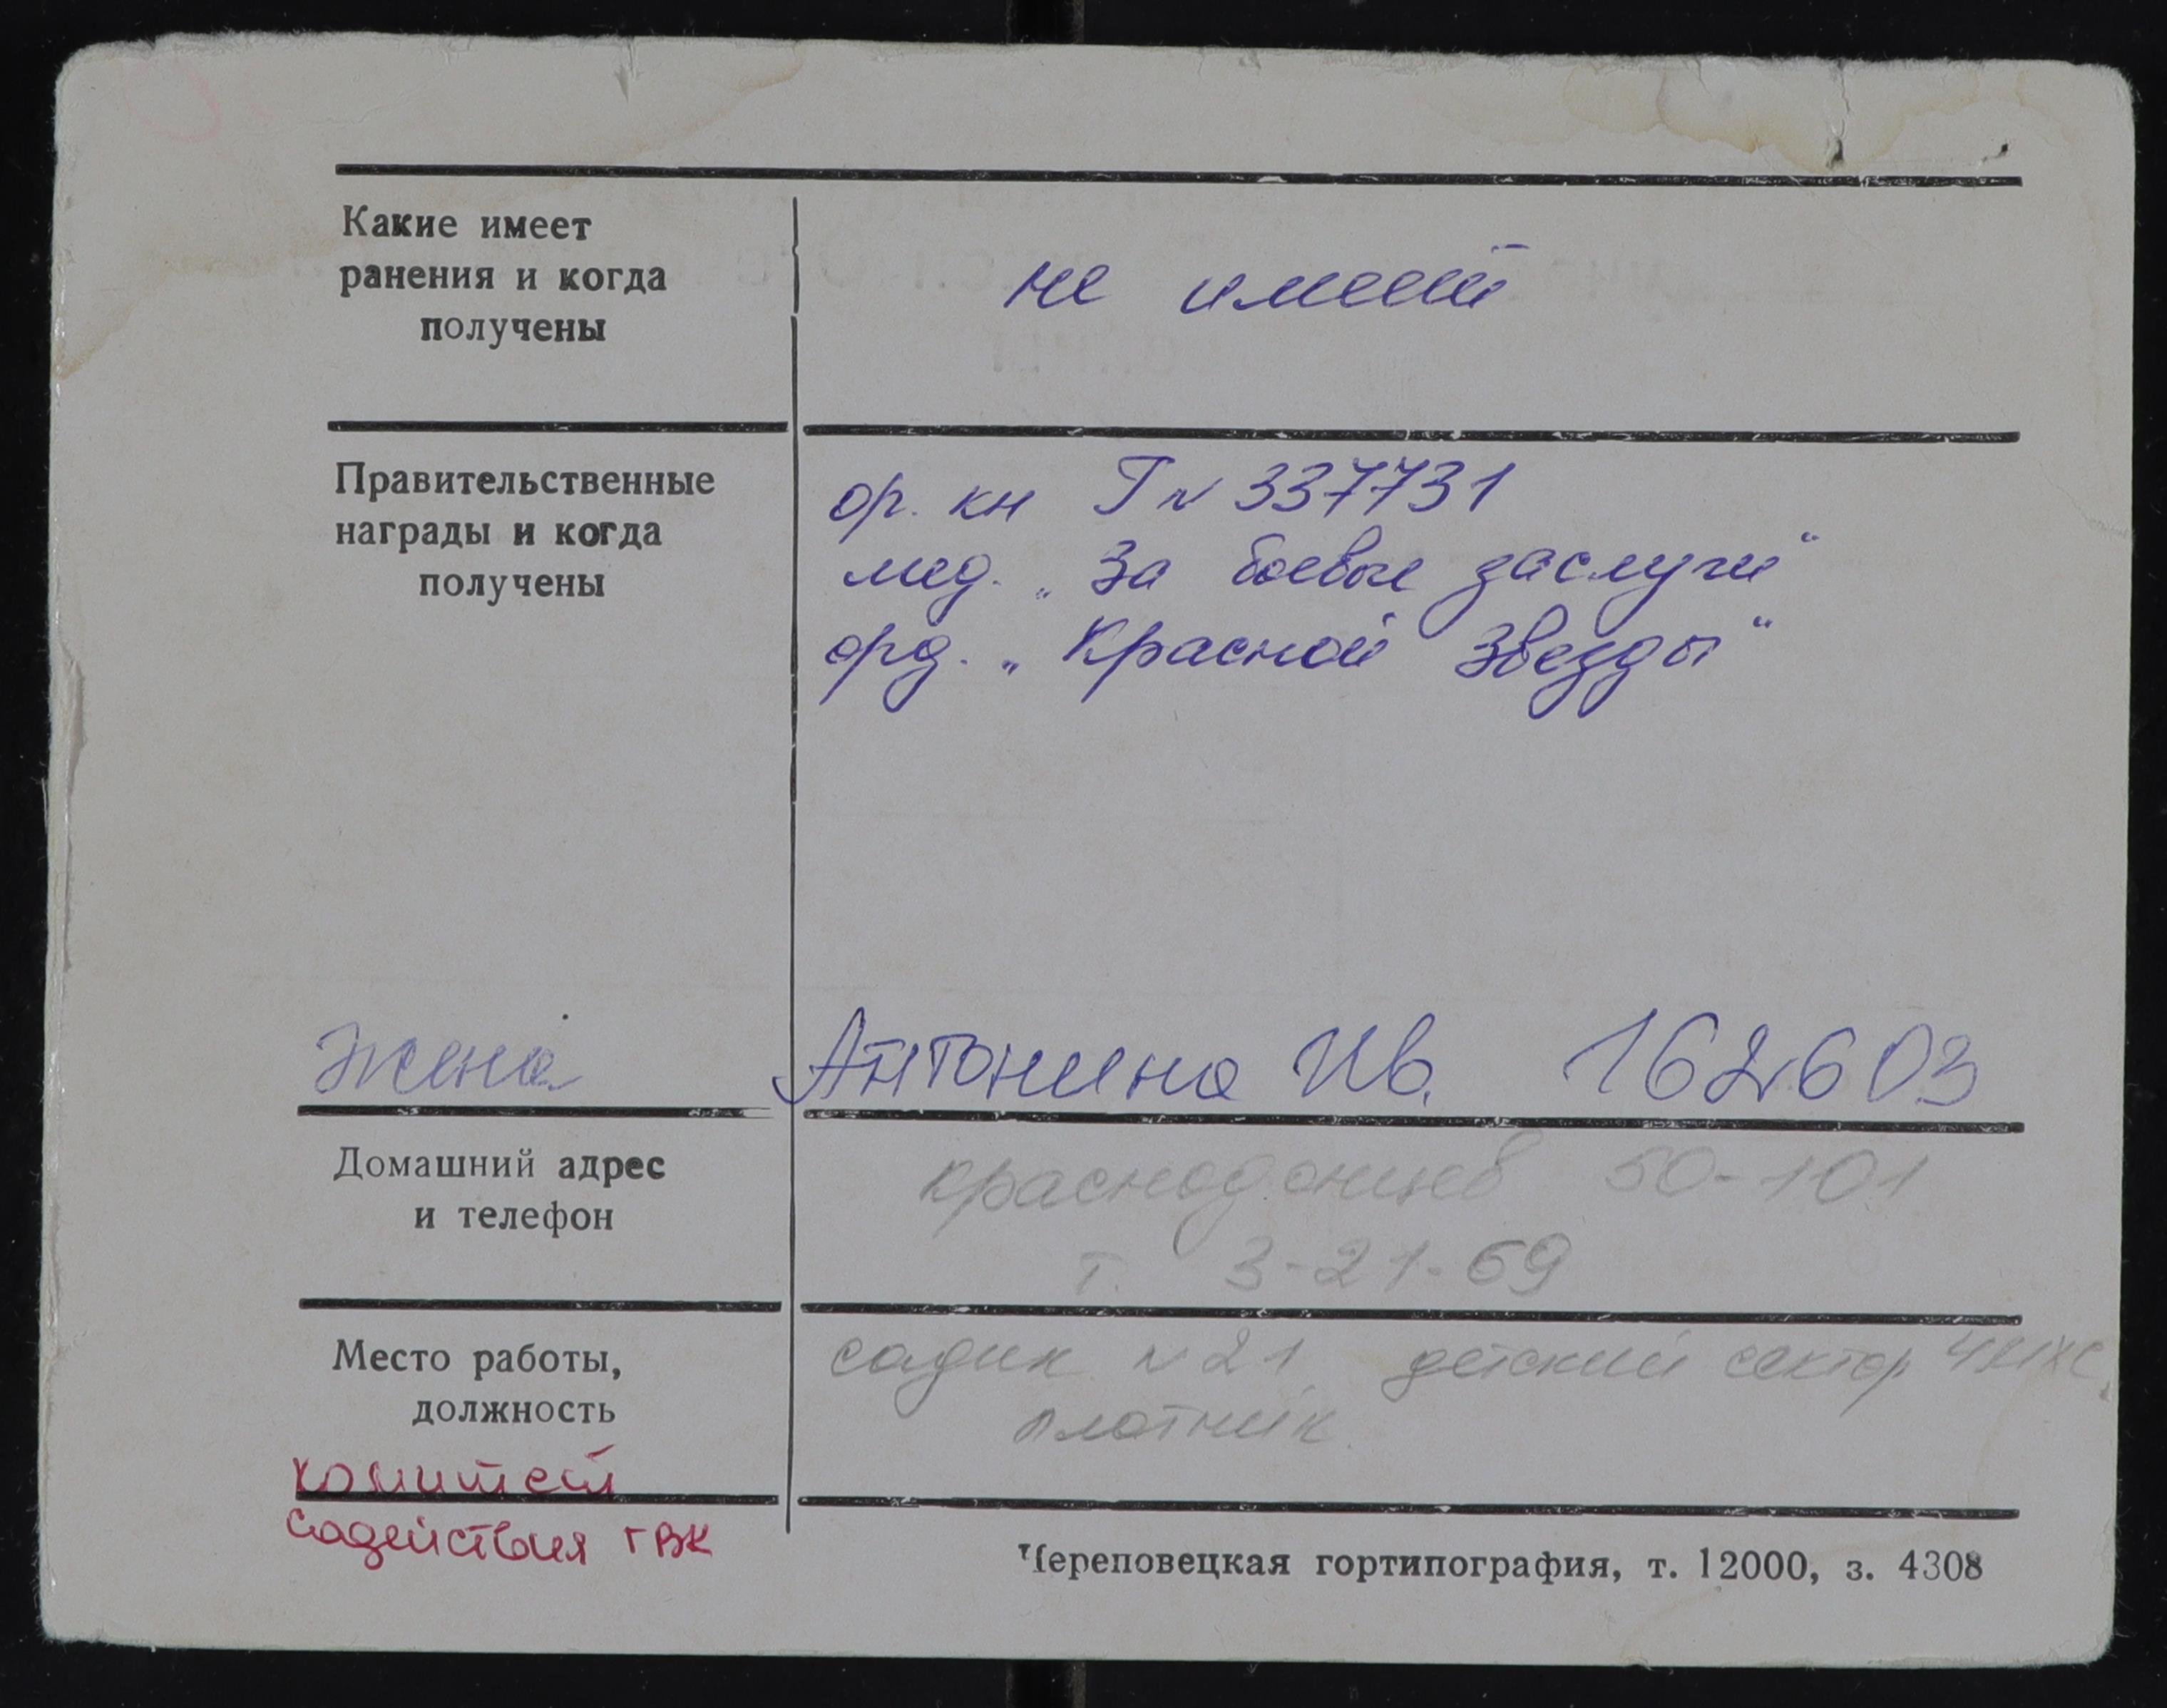 Какие имеет
ранения и когда
получены
не имеет
Правительственные
награды и когда
получены
ор. кн Г № 337731
мед. „За боевые заслуги“
орд. „Красной Звезды“
жена Антонина Ив. 162603
Домашний адрес
и телефон
Краснодонцев 50-101
т. 3-21-69
Место работы,
должность
садик № 21 детский сектор
плотник.
комитет
содействия ГВК
Череповецкая гортипография, т. 12000, з. 4308